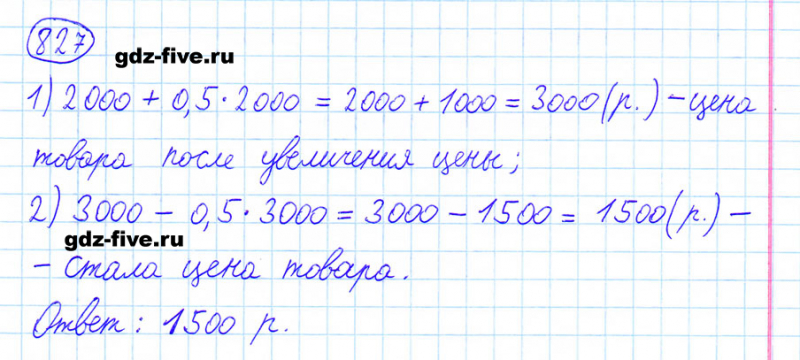 827
gdz-five.ru
1) 2000 + 0,5 · 2000 = 2000 + 1000 = 3000 (р.) – цена
товара после увеличения цены;
2) 3000 – 0,5 · 3000 = 3000 – 1500 = 1500 (р.) –
gdz-five.ru
– стала цена товара.
Ответ: 1500 р.